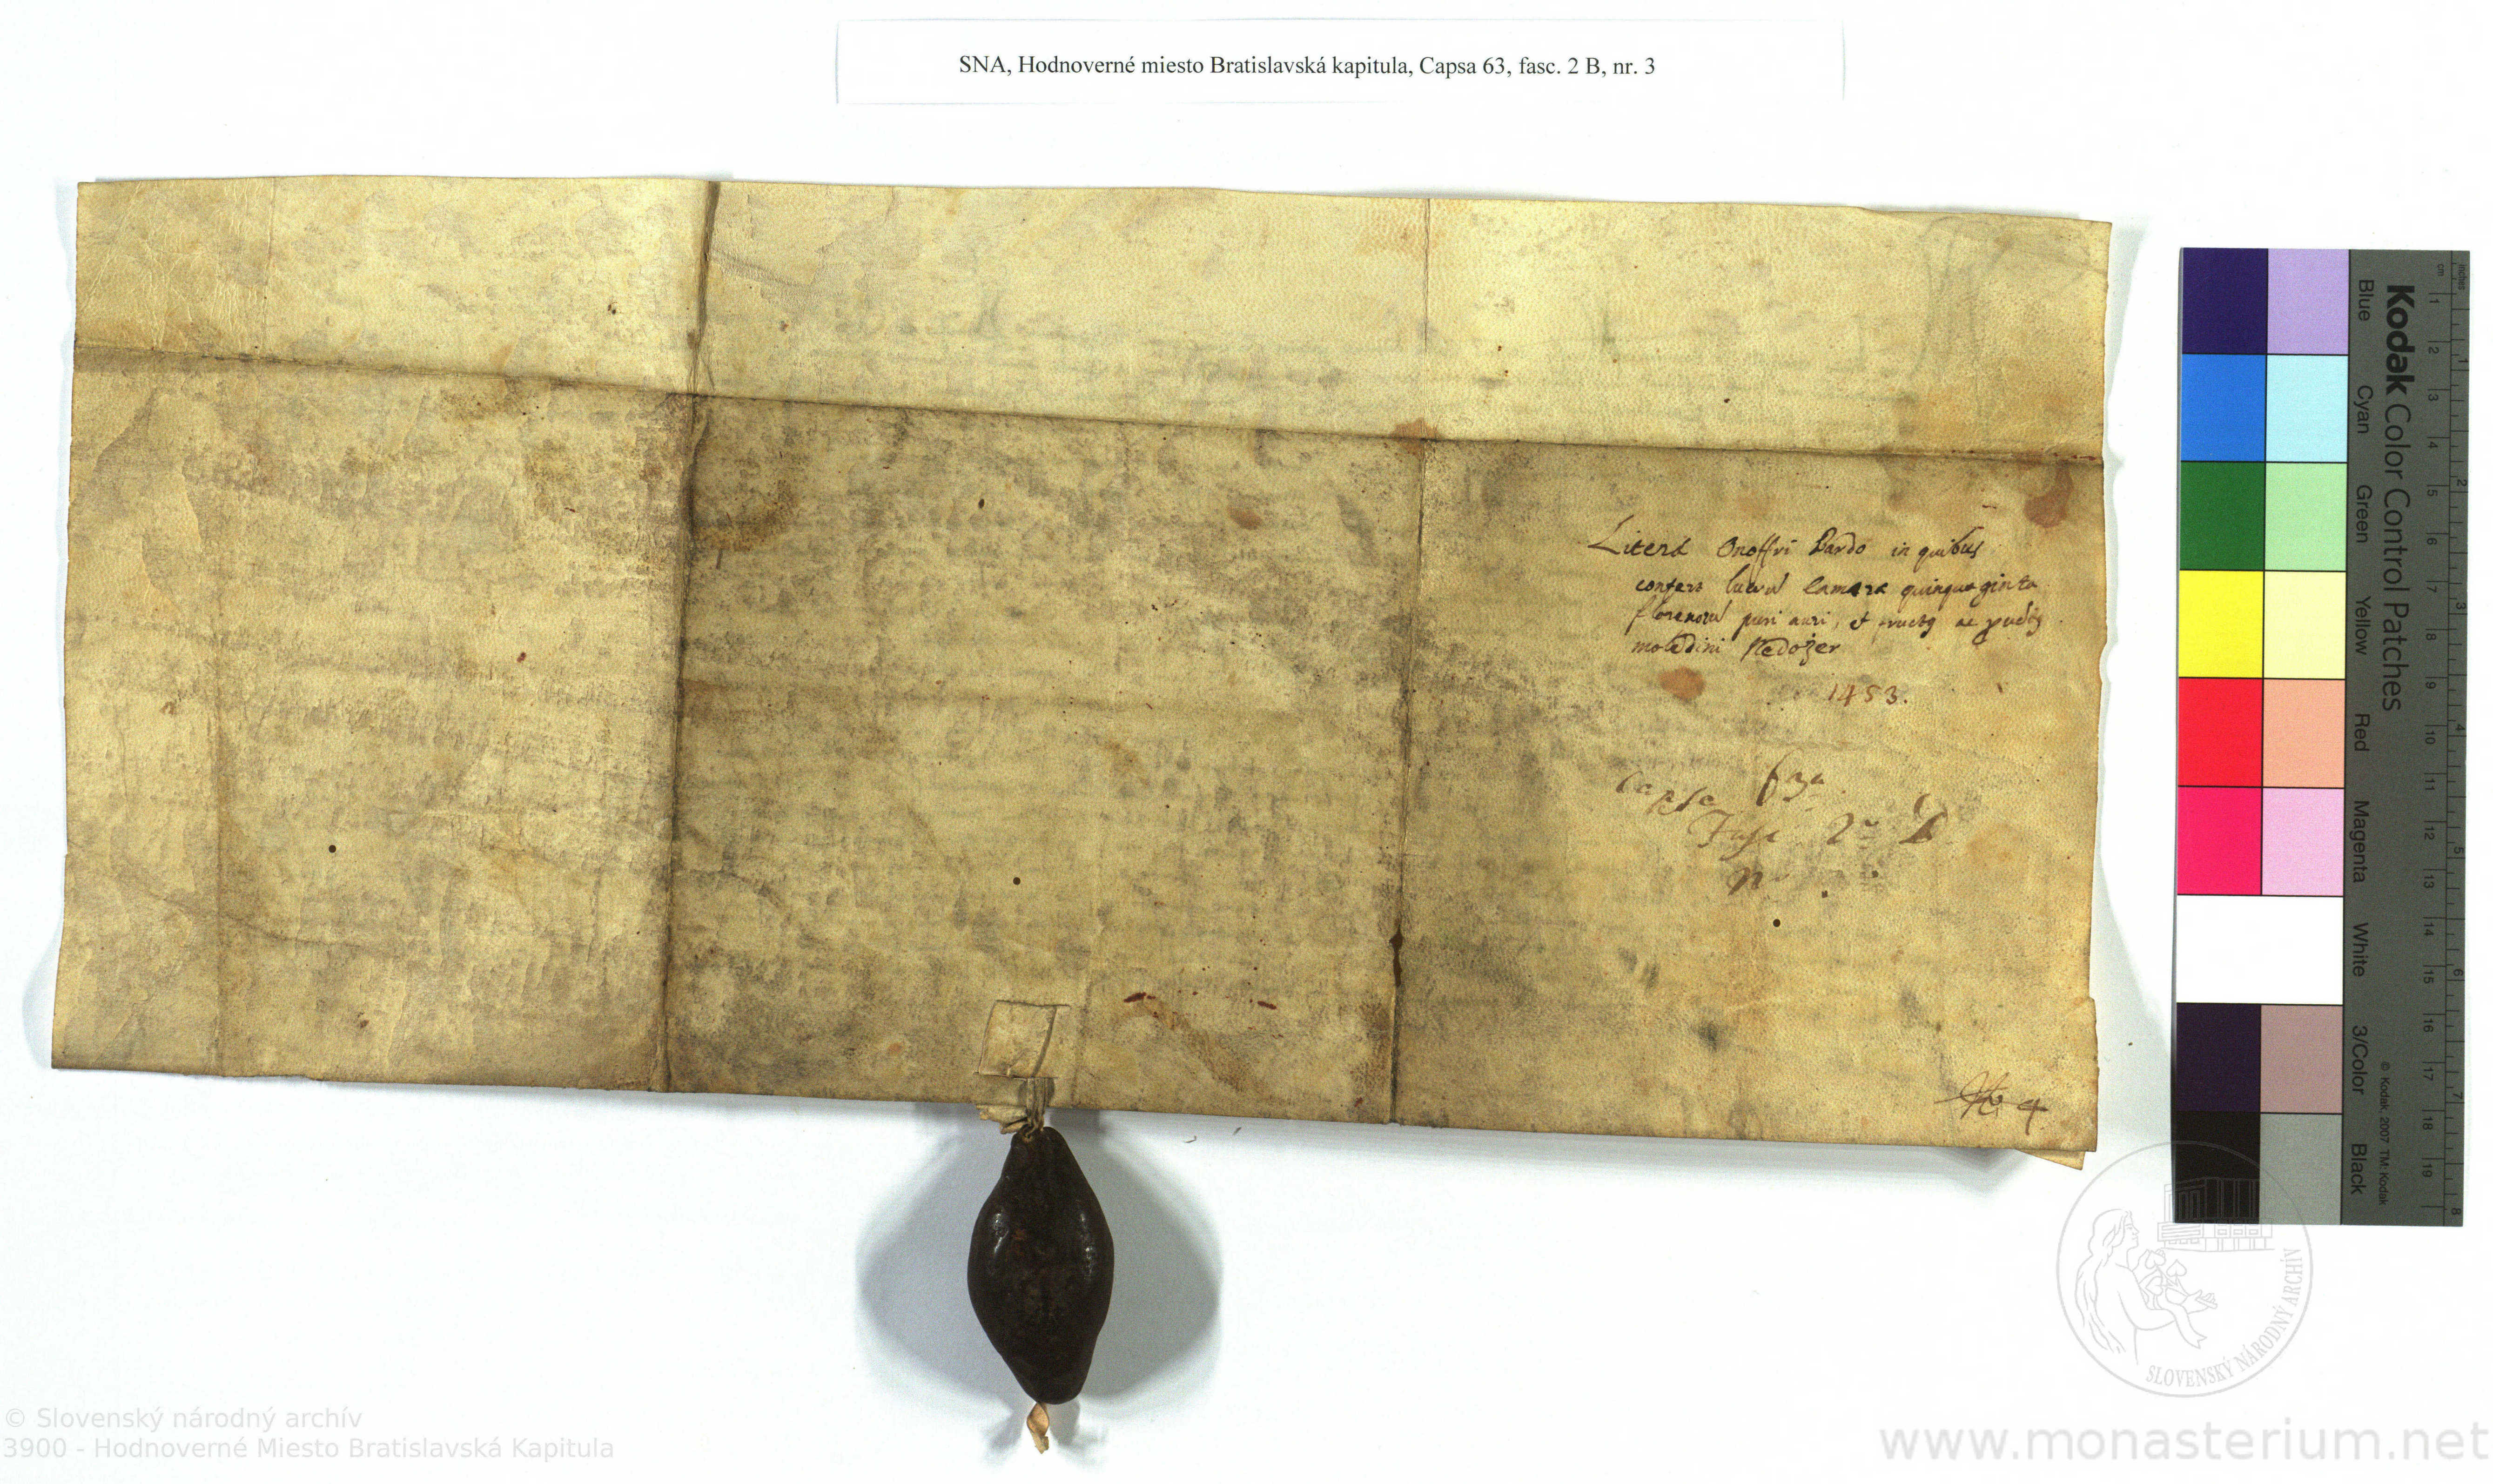 SNA, Hodnoverné miesto Bratislavská kapitula, Capsa 63, fasc. 2 B, nr. 3
Litera Onoffri Bardo in quibus
quinquaginta
puri auri, et ac
Nedożer
1453.
Capsa 63a
Fasc 2
N
4
Kodak Color Control Patches
Blue Cyan Green Yellow Red Magenta White 3/Color Black
© Kodak, 2007 TM: Kodak
cm 1 2 3 4 5 6 7 8 9 10 11 12 13 14 15 16 17 18 19
inches 1 2 3 4 5 6 7 8
SLOVENSKÝ NÁRODNÝ ARCHÍV
© Slovenský národný archív
3900 - Hodnoverné Miesto Bratislavská Kapitula
www.monasterium.net